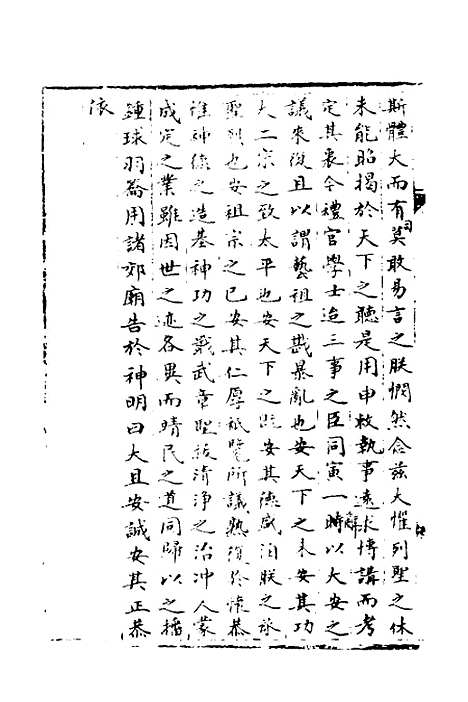 斯體大而有司莫敢易言之朕憫然念茲大懼列聖之休
未能昭揭於天下之聽是用申敕執事遠求博講而考
定其衷今禮官學士迨三事之臣同寅一辭時以大安之
議來復且以謂藝祖之戡暴亂也安天下之未安其功
大二宗之致太平也安天下之既安其德盛洎朕之承
聖烈也安祖宗之已安其仁厚祗覽所議熟復於懷恭
惟神德之造基神功之戢武章聖拔清淨之治沖人蒙
成定之業雖因世之迹各異而靖民之道同歸以之播
鍾球羽籥用諸郊廟告於神明曰大且安誠安其正恭
依